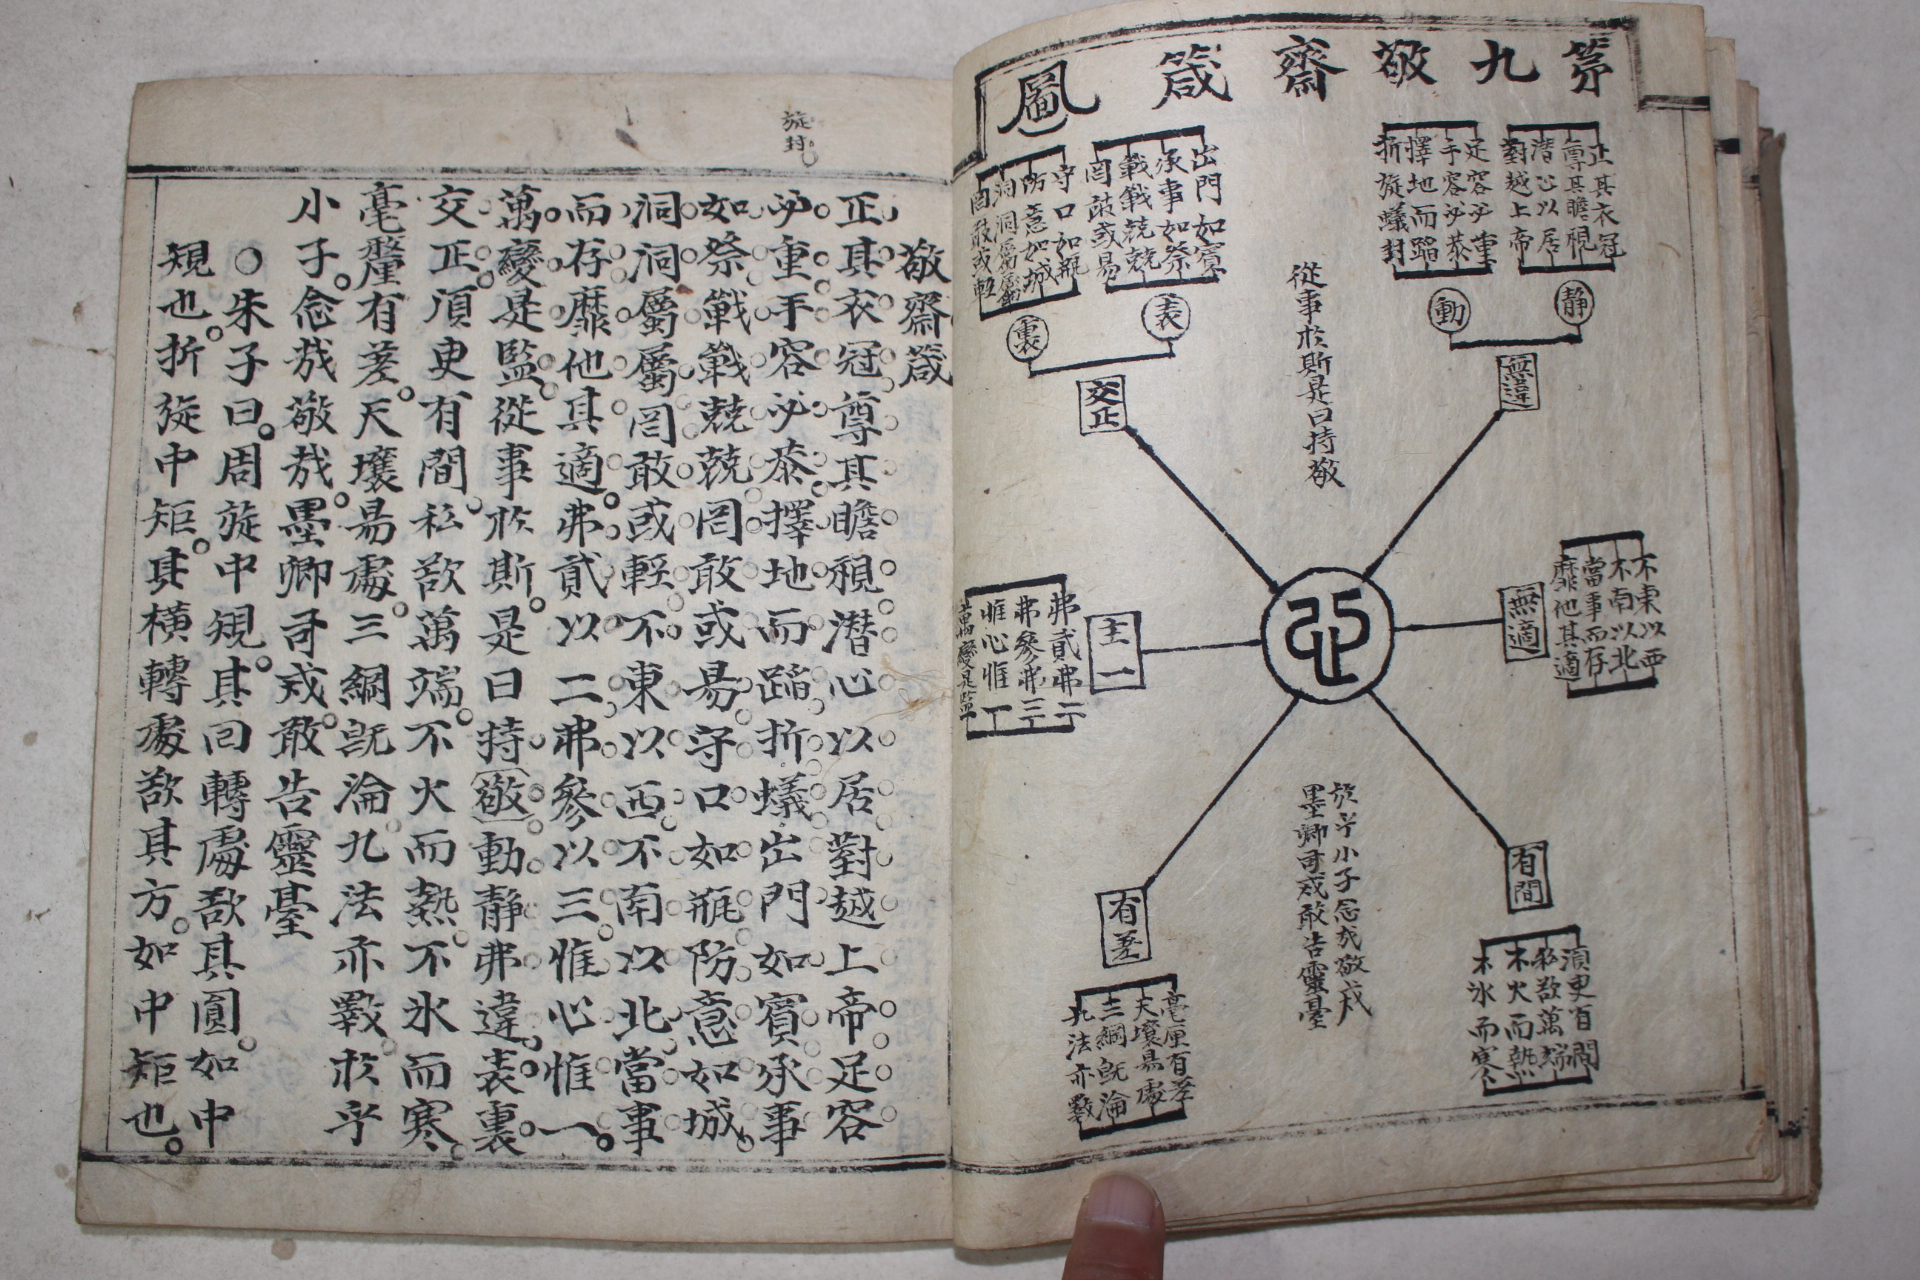 第九敬齋箴圖
正其衣冠
尊其瞻視
潛心以居
對越上帝
靜
足容必重
手容必恭
擇地而蹈
折旋蟻封
動
無違
從事於斯是曰持敬
出門如賓
承事如祭
戰戰兢兢
罔敢或易
表
守口如瓶
防意如城
洞洞屬屬
罔敢或輕
裏
交正
心
不東以西
不南以北
當事而存
靡他其適
無適
主一
弗貳弗二
弗參弗三
惟心惟一
萬變是監
有間
須臾有間
私欲萬端
不火而熱
不氷而寒
有差
毫厘有差
天壤易處
三綱旣淪
九法亦斁
於乎小子念哉敬哉
墨卿司戒敢告靈臺
旋封
敬齋箴
正其衣冠尊其瞻視潛心以居對越上帝足容
必重手容必恭擇地而蹈折蟻出門如賓承事
如祭戰戰兢兢罔敢或易守口如瓶防意如城
洞洞屬屬罔敢或輕不東以西不南以北當事
而存靡他其適弗貳以二弗參以三惟心惟一
萬變是監從事於斯是曰持敬動靜弗違表裏
交正須臾有間私欲萬端不火而熱不氷而寒
毫釐有差天壤易處三綱旣淪九法亦斁於乎
小子念哉敬哉墨卿司戒敢告靈臺
○朱子曰周旋中規其回轉處欲其圓如中
規也折旋中矩其橫轉處欲其方如中矩也